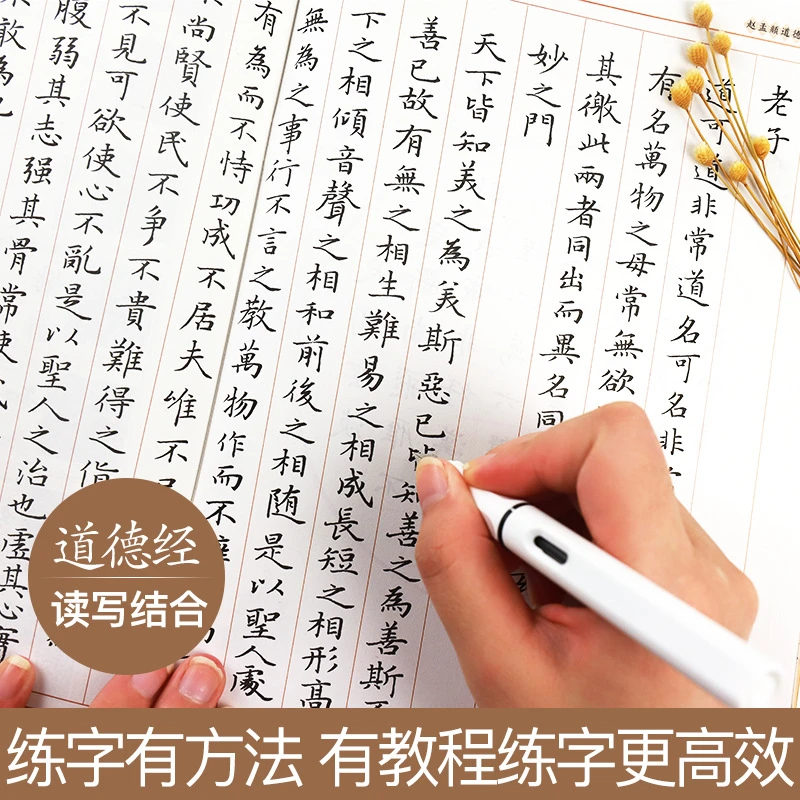 赵孟頫道德
老子
道可道非常道名可名非
有名萬物之母常無欲
其徼此兩者同出而異名同
妙之門
天下皆知美之為美斯惡已皆知善之為善斯
善已故有無之相生難易之相成長短之相形高
下之相傾音聲之相和前後之相随是以聖人處
無為之事行不言之教萬物作而不辭
有為而不恃功成不居夫唯不
不尚賢使民不争不貴難得之貨
不見可欲使心不亂是以聖人之治也虛其心實
腹弱其志强其骨常使
敢為
道德经
读写结合
练字有方法 有教程练字更高效